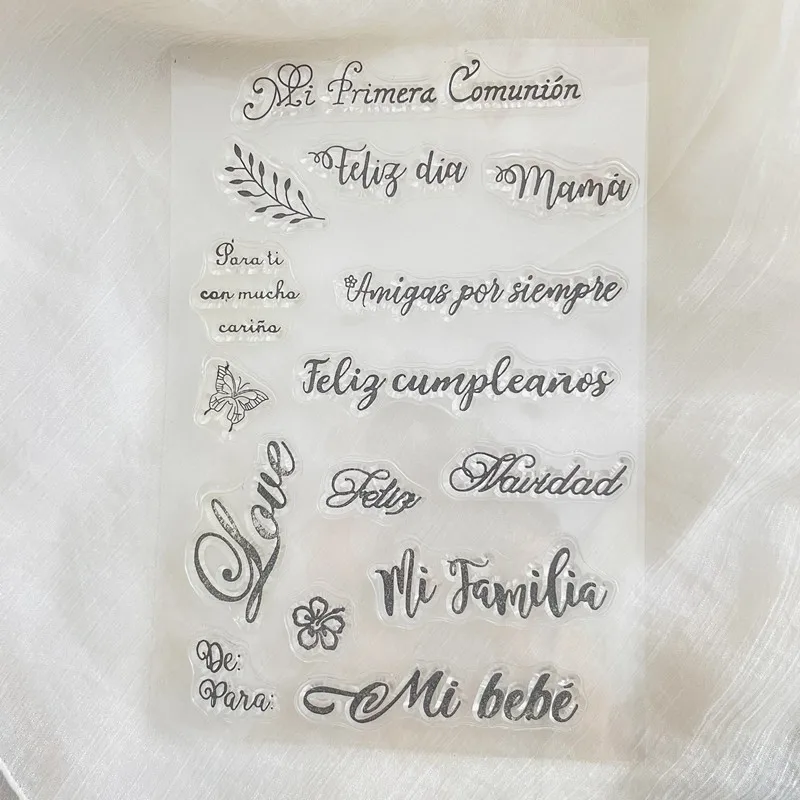 Mi Primera Comunión
Feliz día
Mamá
Para ti
con mucho
cariño
Amigas por siempre
Feliz cumpleaños
Love
Feliz
Navidad
Mi Familia
De:
Para:
Mi bebé